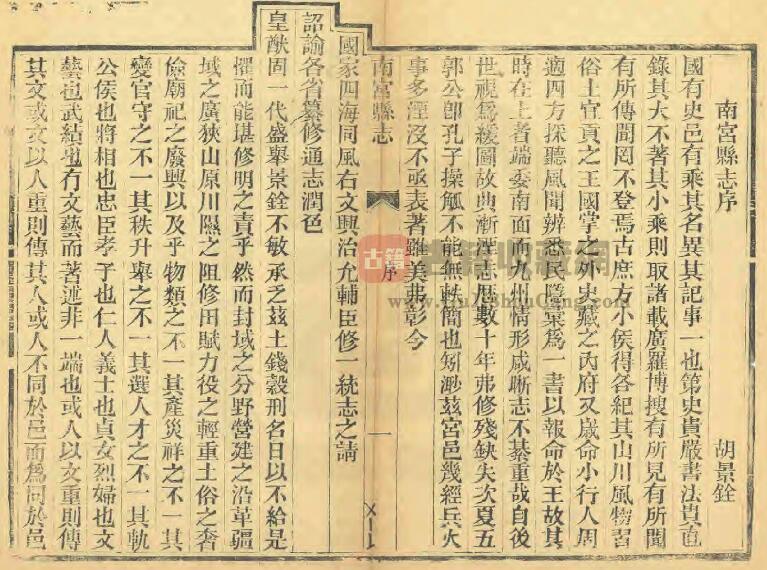 南宮縣志序
胡景銓
國有史邑有乘其名異其記事一也第史貴嚴書法貴直
錄其大不著其小乘則取諸載廣羅博搜有所見有所聞
有所傳聞罔不登焉古庶方小侯得各紀其山川風物習
俗土宜貢之王國掌之外史藏之內府又歲命小行人周
適四方採聽風聞辨悉民隱彙爲一書以報命於王故其
時在上者端委南面而九州情形咸晰志不綦重哉自後
世視爲緩圖故典漸湮志歷數十年弗修殘缺失次夏五
郭公卽孔子操觚不能無軼簡也矧渺茲宮邑幾經兵火
事多湮沒不亟表著雖美弗彰今
南宮縣志
序
一
國家四海同風右文興治允輔臣修一統志之請
詔諭各省纂修通志潤色
皇猷固一代盛舉景銓不敏承乏茲土錢穀刑名日以不給是
懼而能堪修明之責乎然而封域之分野營建之沿革疆
域之廣狹山原川隰之阻修田賦力役之輕重土俗之奢
儉廟祀之廢興以及乎物類之不一其產災祥之不一其
變官守之不一其秩升舉之不一其選人才之不一其軌
公侯也將相也忠臣孝子也仁人義士也貞女烈婦也文
藝也武績也有文藝而著述非一端也或人以文重則傳
其文或文以人重則傳其人或人不同於邑而爲同於邑
古籍收藏網